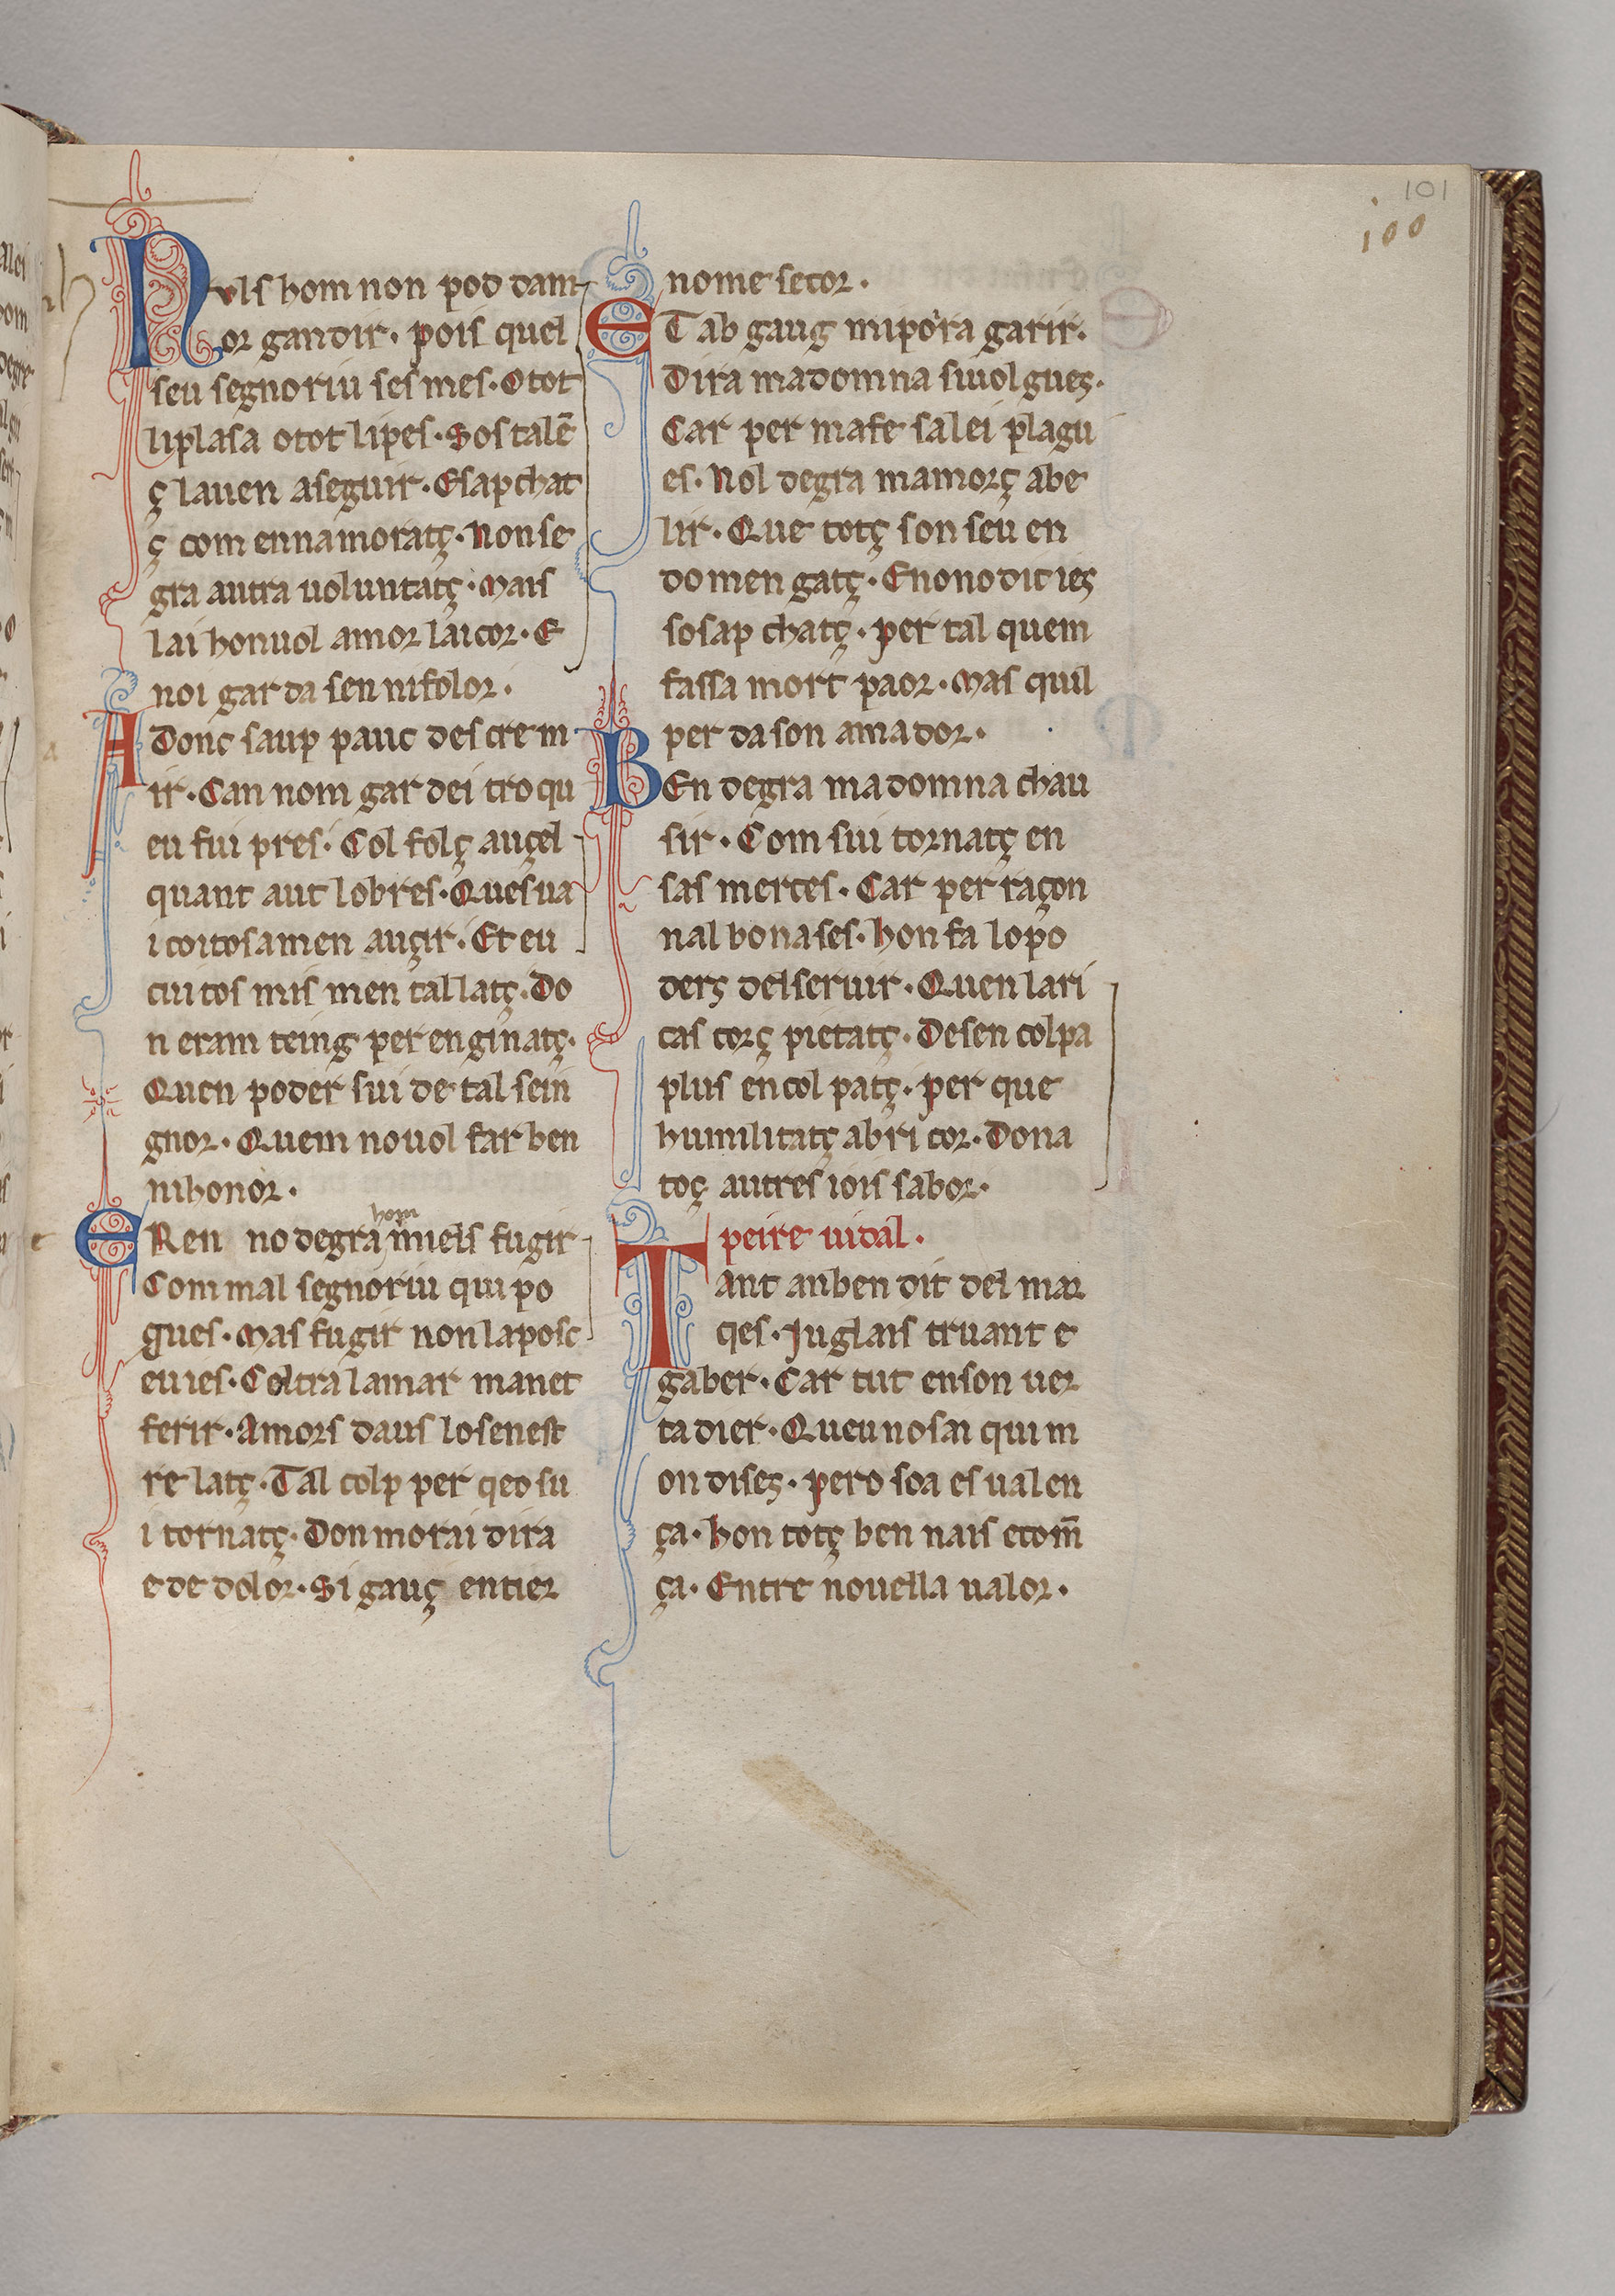 101
100
Nvls hom non pod dam
or gandir · pois quel
seu segnoriu ses mes · Otot
li plasa o tot li pes · Sos talē
ç lauen a seguir · E sapchat
ç com ennamoratç · Non se
gra autra uoluntatç · Mais
lai hon uol amor lai cor · E
noi garda sen ni folor ·
Adonc saup pauc descrem
ir · Can nom gardei tro qu
eu fui pres · Col folç auçel
quant aut lo bres · Que sua
i coitosamen auçir · Et eu
cuitos mis men tal latç · Do
n eram teing per enginatç ·
Quen poder sui de tal sein
gnor · Quem no uol far ben
ni honor ·
hom
E Ren no degra miels fugir
Com mal segnoriu qui po
gues · Mas fugir non la posc
eu ies · Coltra la mar manet
ferir · Amors daus lo senest
re latç · Tal colp per qeo su
i tornatç · Don morai dira
e de dolor · Si gauç entier
no me secor ·
ET ab gaug mi pora garir ·
Dira ma domna si uolgues ·
Car per ma fe sa lei plagu
es · Nol degra mamorç abe
lir · Que totç son seu en
domengatç · E no no dic ies
so sapchatç · per tal quem
fassa mort paor · Mas quil
perda son amador ·
BEn degra ma domna chau
sir · Com sui tornatç en
sas merces · Car per raçon
nal bona ses · hon fa lo po
derç del seruir · Quen la ri
cas corç pietatç · De sen colpa
plus encolpatç · per que
humilitatç a bri cor · Dona
toç autres iois sabor ·
peire uidal ·
Tant an ben dit del mar
qes · Juglars truant e
gaber · Car tut en son uer
tadier · Queu no sai qui m
on dises · pero soa es ualen
ça · hon totç ben nais e com̄
ça · Entre nouella ualor ·